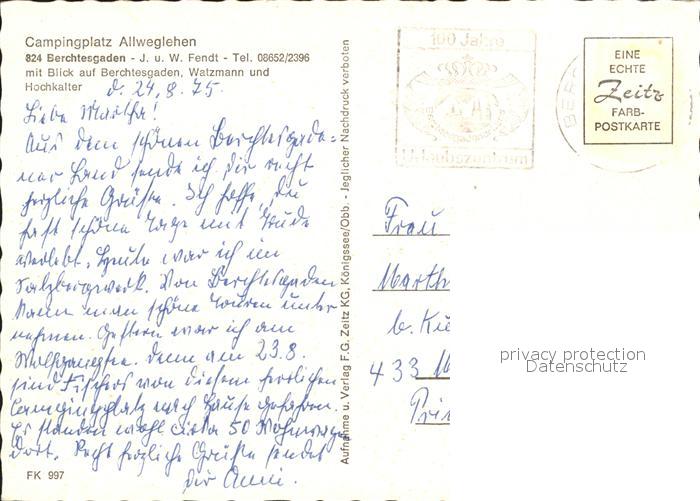 Campingplatz Allweglehen
824 Berchtesgaden - J. u. W. Fendt - Tel. 08652/2396
mit Blick auf Berchtesgaden, Watzmann und
Hochkalter
d. 24.8.75.
Liebe Martha!
Aus dem schönen Berchtesgade=
ner Land sende ich Dir recht
herzliche Grüße. Ich hoffe, du
hast schöne Tage mit Trude
verlebt. Heute war ich im
Salzbergwerk. Von Berchtesgaden
kann man schöne Touren unter
nehmen. Gestern war ich am
Wolfgangsee. Denn am 23.8.
sind Fischers von diesem herrlichen
Campingplatz nach Hause gefahren.
Es standen wohl cirka 50 Wohnwagen
dort. Recht herzliche Grüße sendet
Dir Anni.
FK 997
Aufnahme u. Verlag F.G. Zeitz KG, Königssee/Obb. - Jeglicher Nachdruck verboten
100 Jahre
Urlaubszentrum
BER
EINE
ECHTE
Zeitz
FARB-
POSTKARTE
Frau
Marth
b.
433
privacy protection
Datenschutz